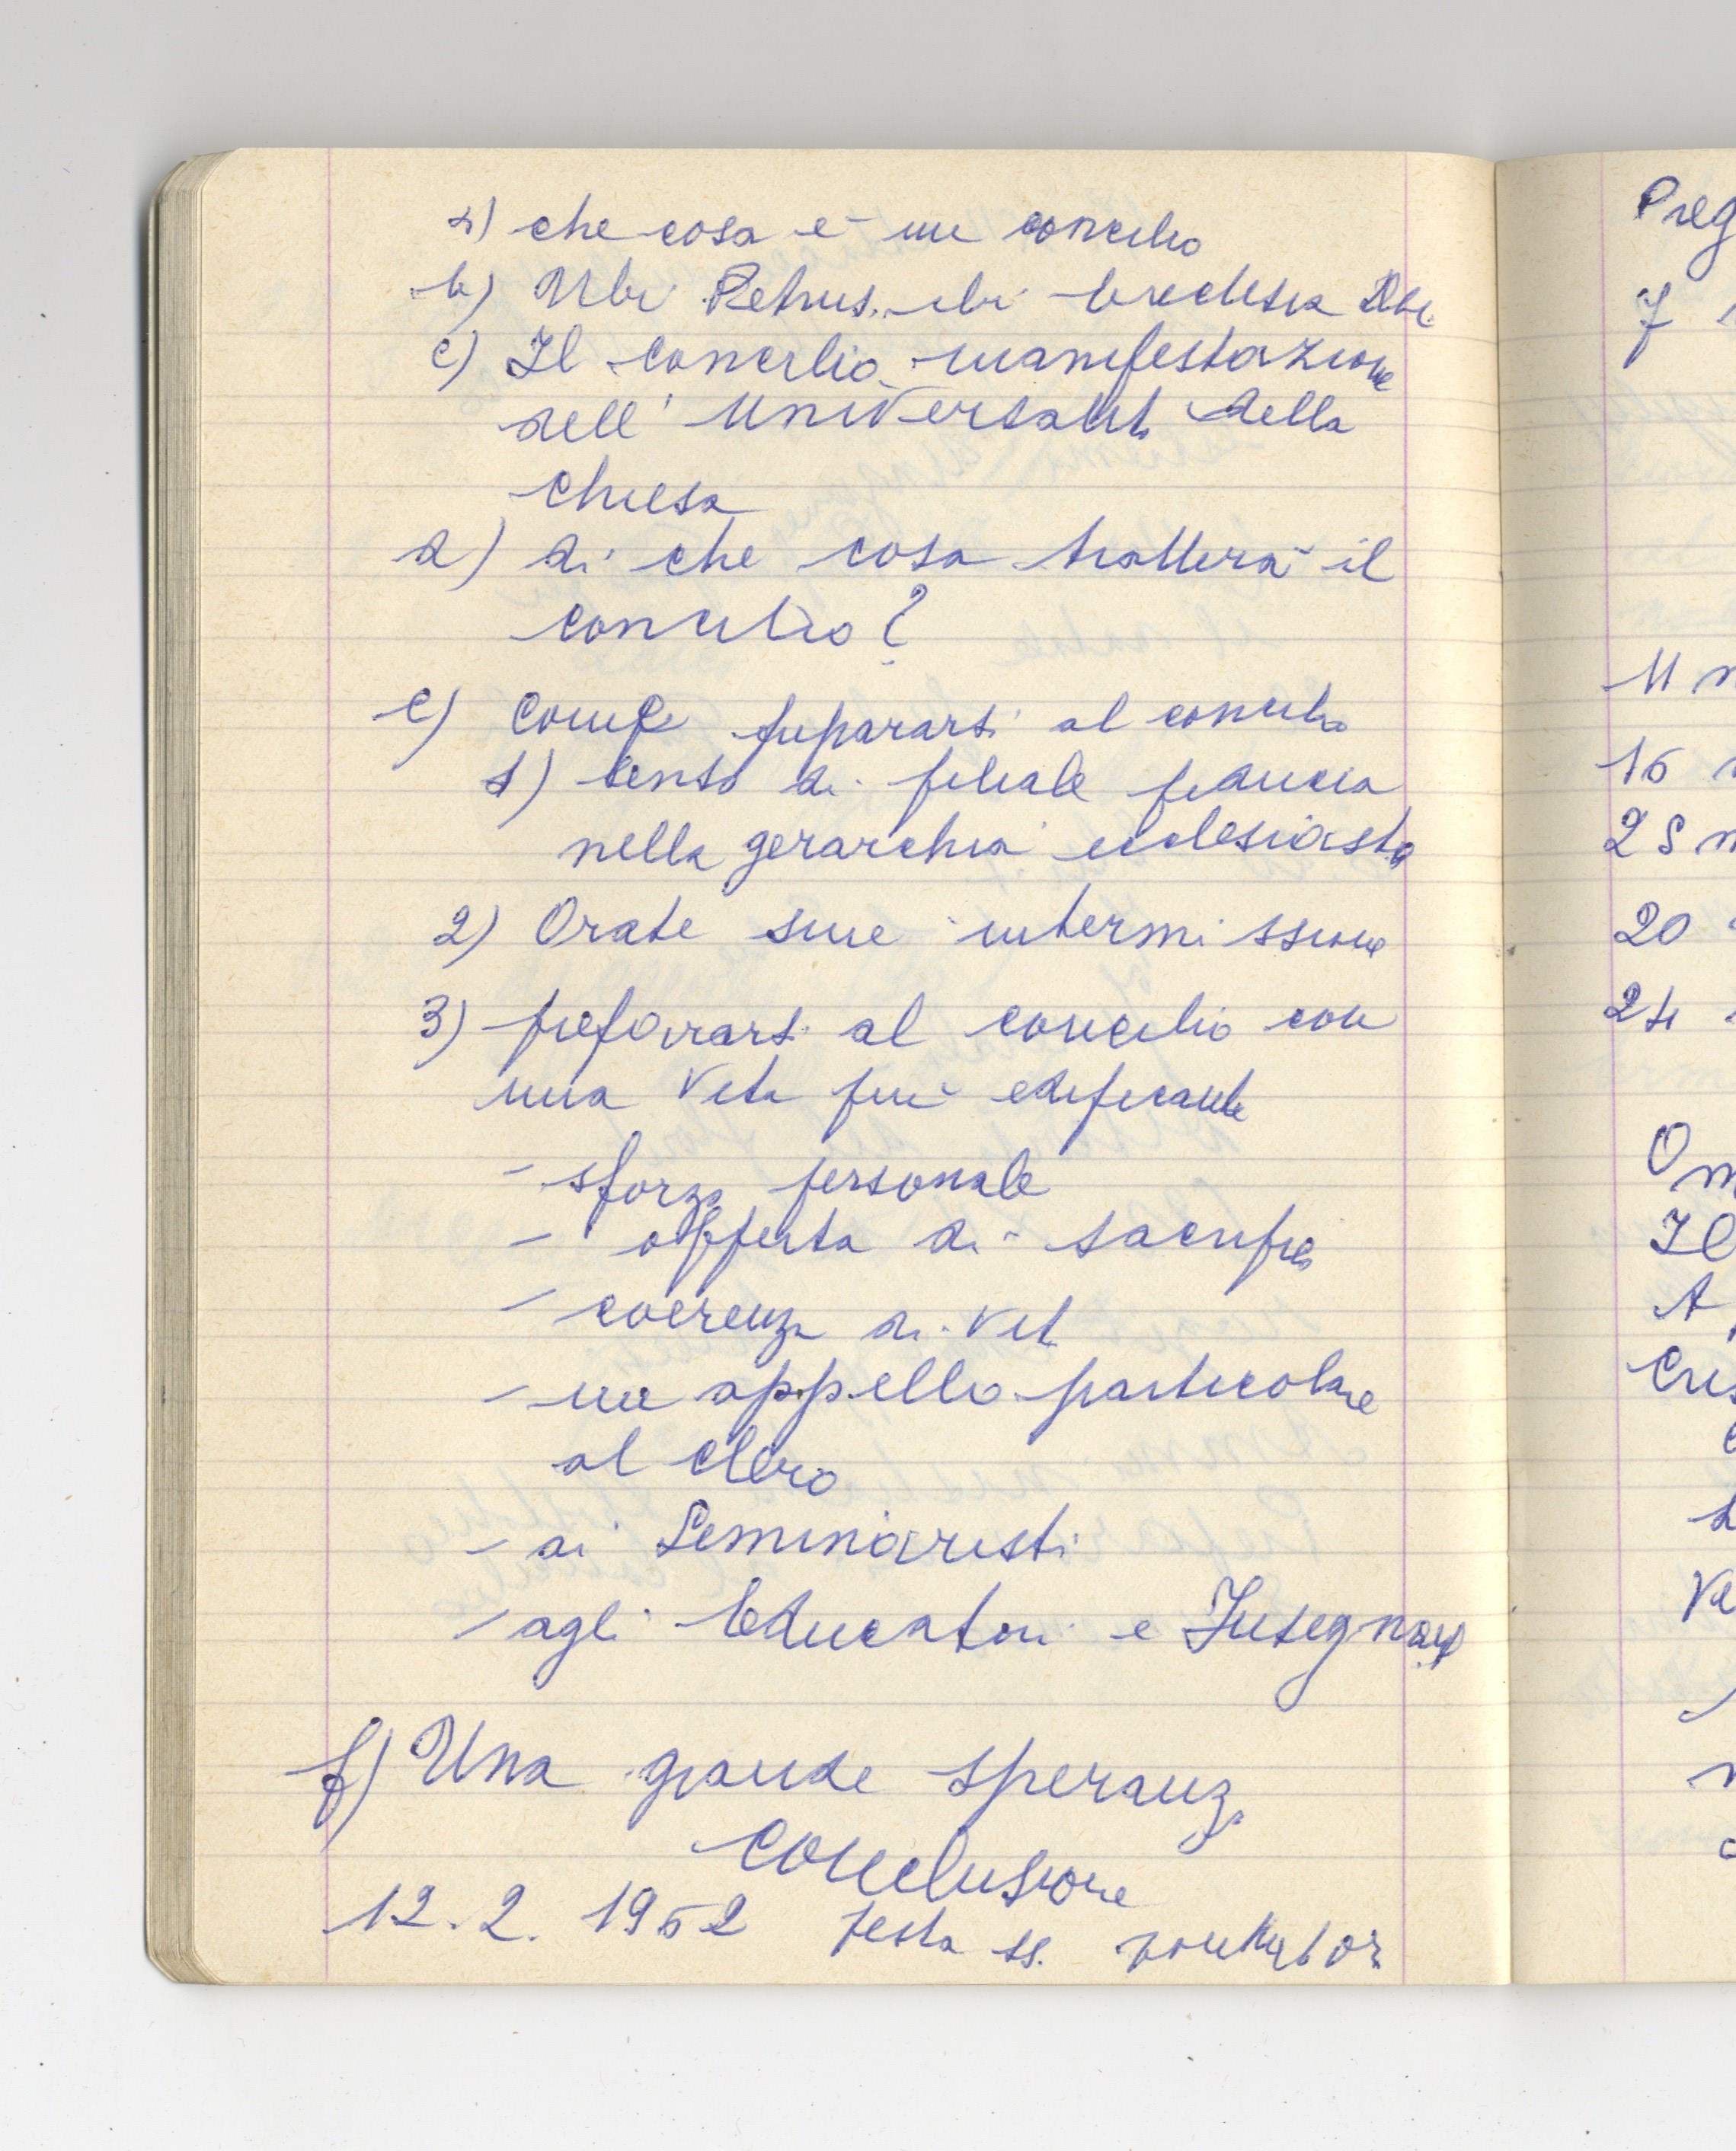 a) che cosa è un concilio
b) Ubi Petrus, ibi Ecclesia
c) Il Concilio manifestazione
dell'universalità della
chiesa
d) di che cosa tratterà il
concilio?
e) Come prepararsi al concilio
1) senso di filiale fiducia
nella gerarchia ecclesiasta
2) Orate sine intermissione
3) prepararsi al concilio con
una vita più edificante
- sforzo personale
- offerta di sacrifici
- coerenza di vita
- un appello particolare
al Clero
- ai Seminaristi
- agli Educatori e Insegnanti
f) Una grande speranza
Conclusione
12.2.1962 festa ss.
Preg
7
11
16
28
20
24
Om
Il
A